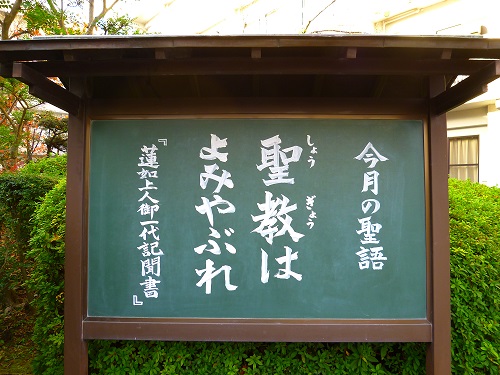 今月の聖語
聖教は
しょうぎょう
よみやぶれ
『蓮如上人御一代記聞書』